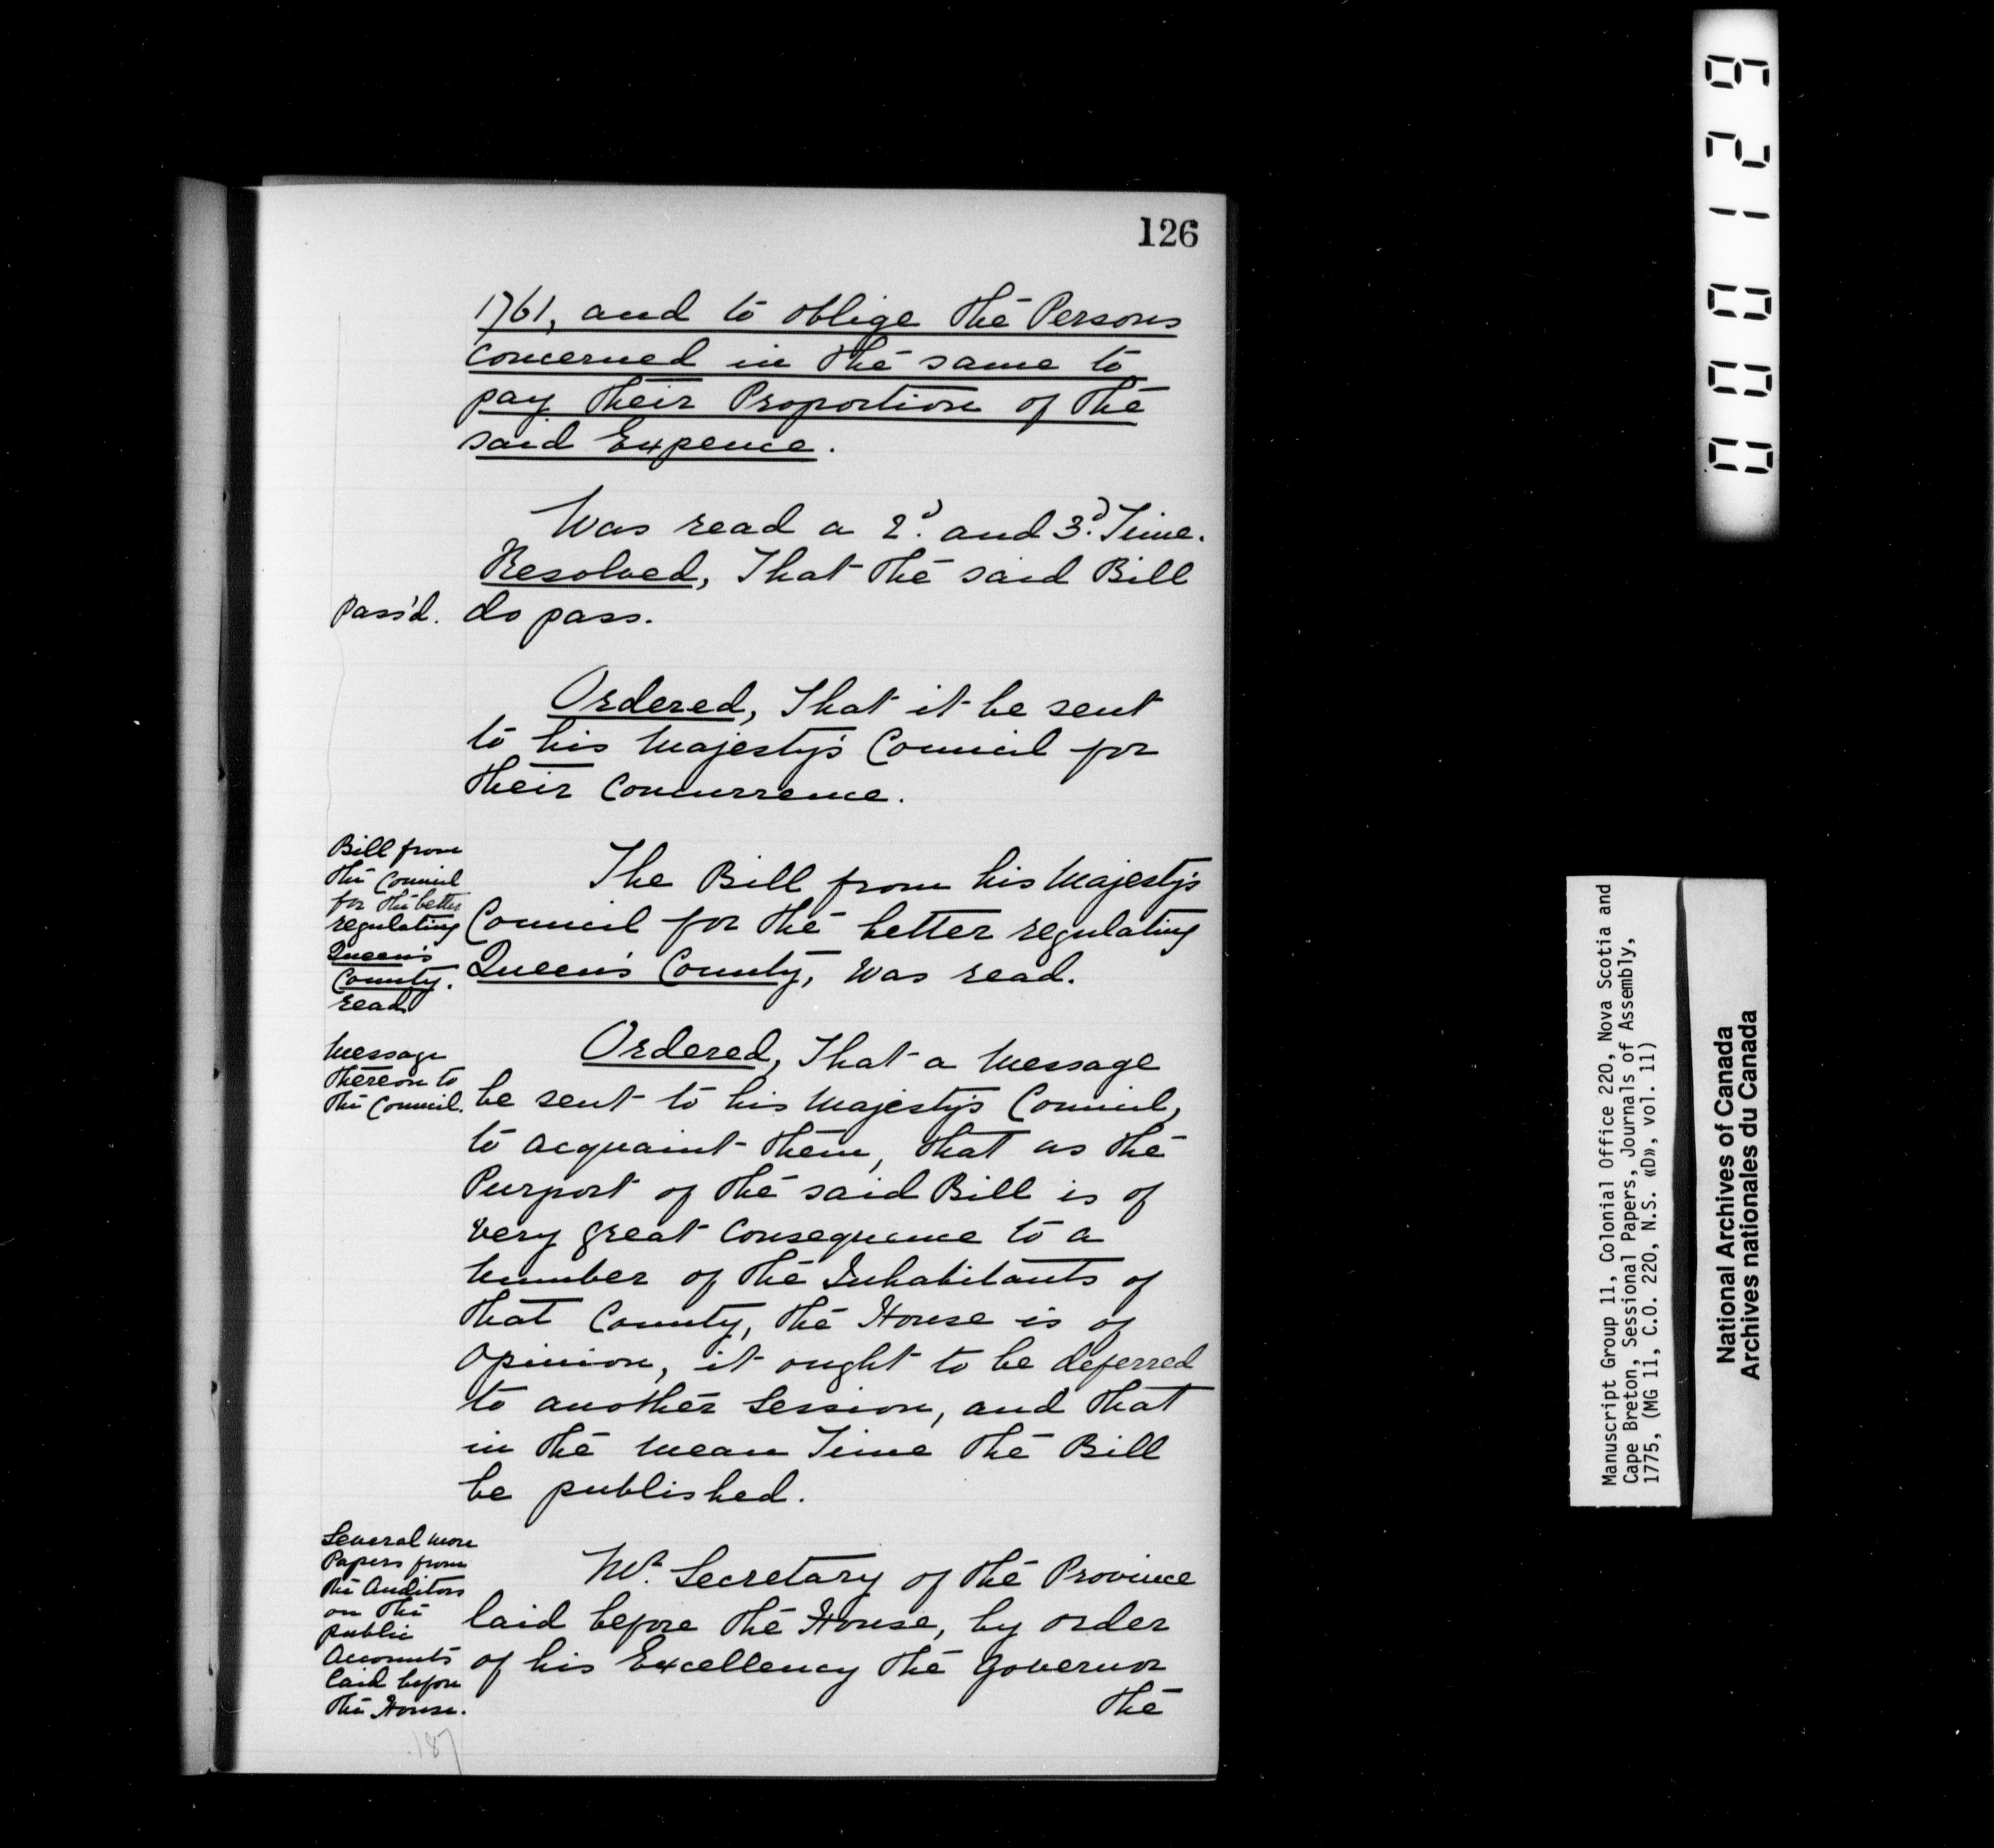 126
1761, and to oblige the Persons
concerned in the same to
pay their Proportion of the
said Expence.
Was read a 2d. and 3d. Time.
Resolved, That the said Bill
Pass'd.
do pass.
Ordered, That it be sent
to his Majesty's Council for
their Concurrence.
Bill from
the Council
for the better
regulating
Queen's
County.
read
The Bill from his Majesty's
Council for the better regulating
Queen's County, was read.
Message
thereon to
the Council.
Ordered, That a Message
be sent to his Majesty's Council,
to acquaint them, that as the
Purport of the said Bill is of
very great Consequence to a
Number of the Inhabitants of
that County, the House is of
Opinion, it ought to be deferred
to another Session, and that
in the mean Time the Bill
be published.
Several more
Papers from
the Auditors
on the
public
Accounts
laid before
the House.
Mr. Secretary of the Province
laid before the House, by order
of his Excellency the Governor
the
187
000129
Manuscript Group 11, Colonial Office 220, Nova Scotia and
Cape Breton, Sessional Papers, Journals of Assembly,
1775, (MG 11, C.O. 220, N.S. «D», vol. 11)
National Archives of Canada
Archives nationales du Canada